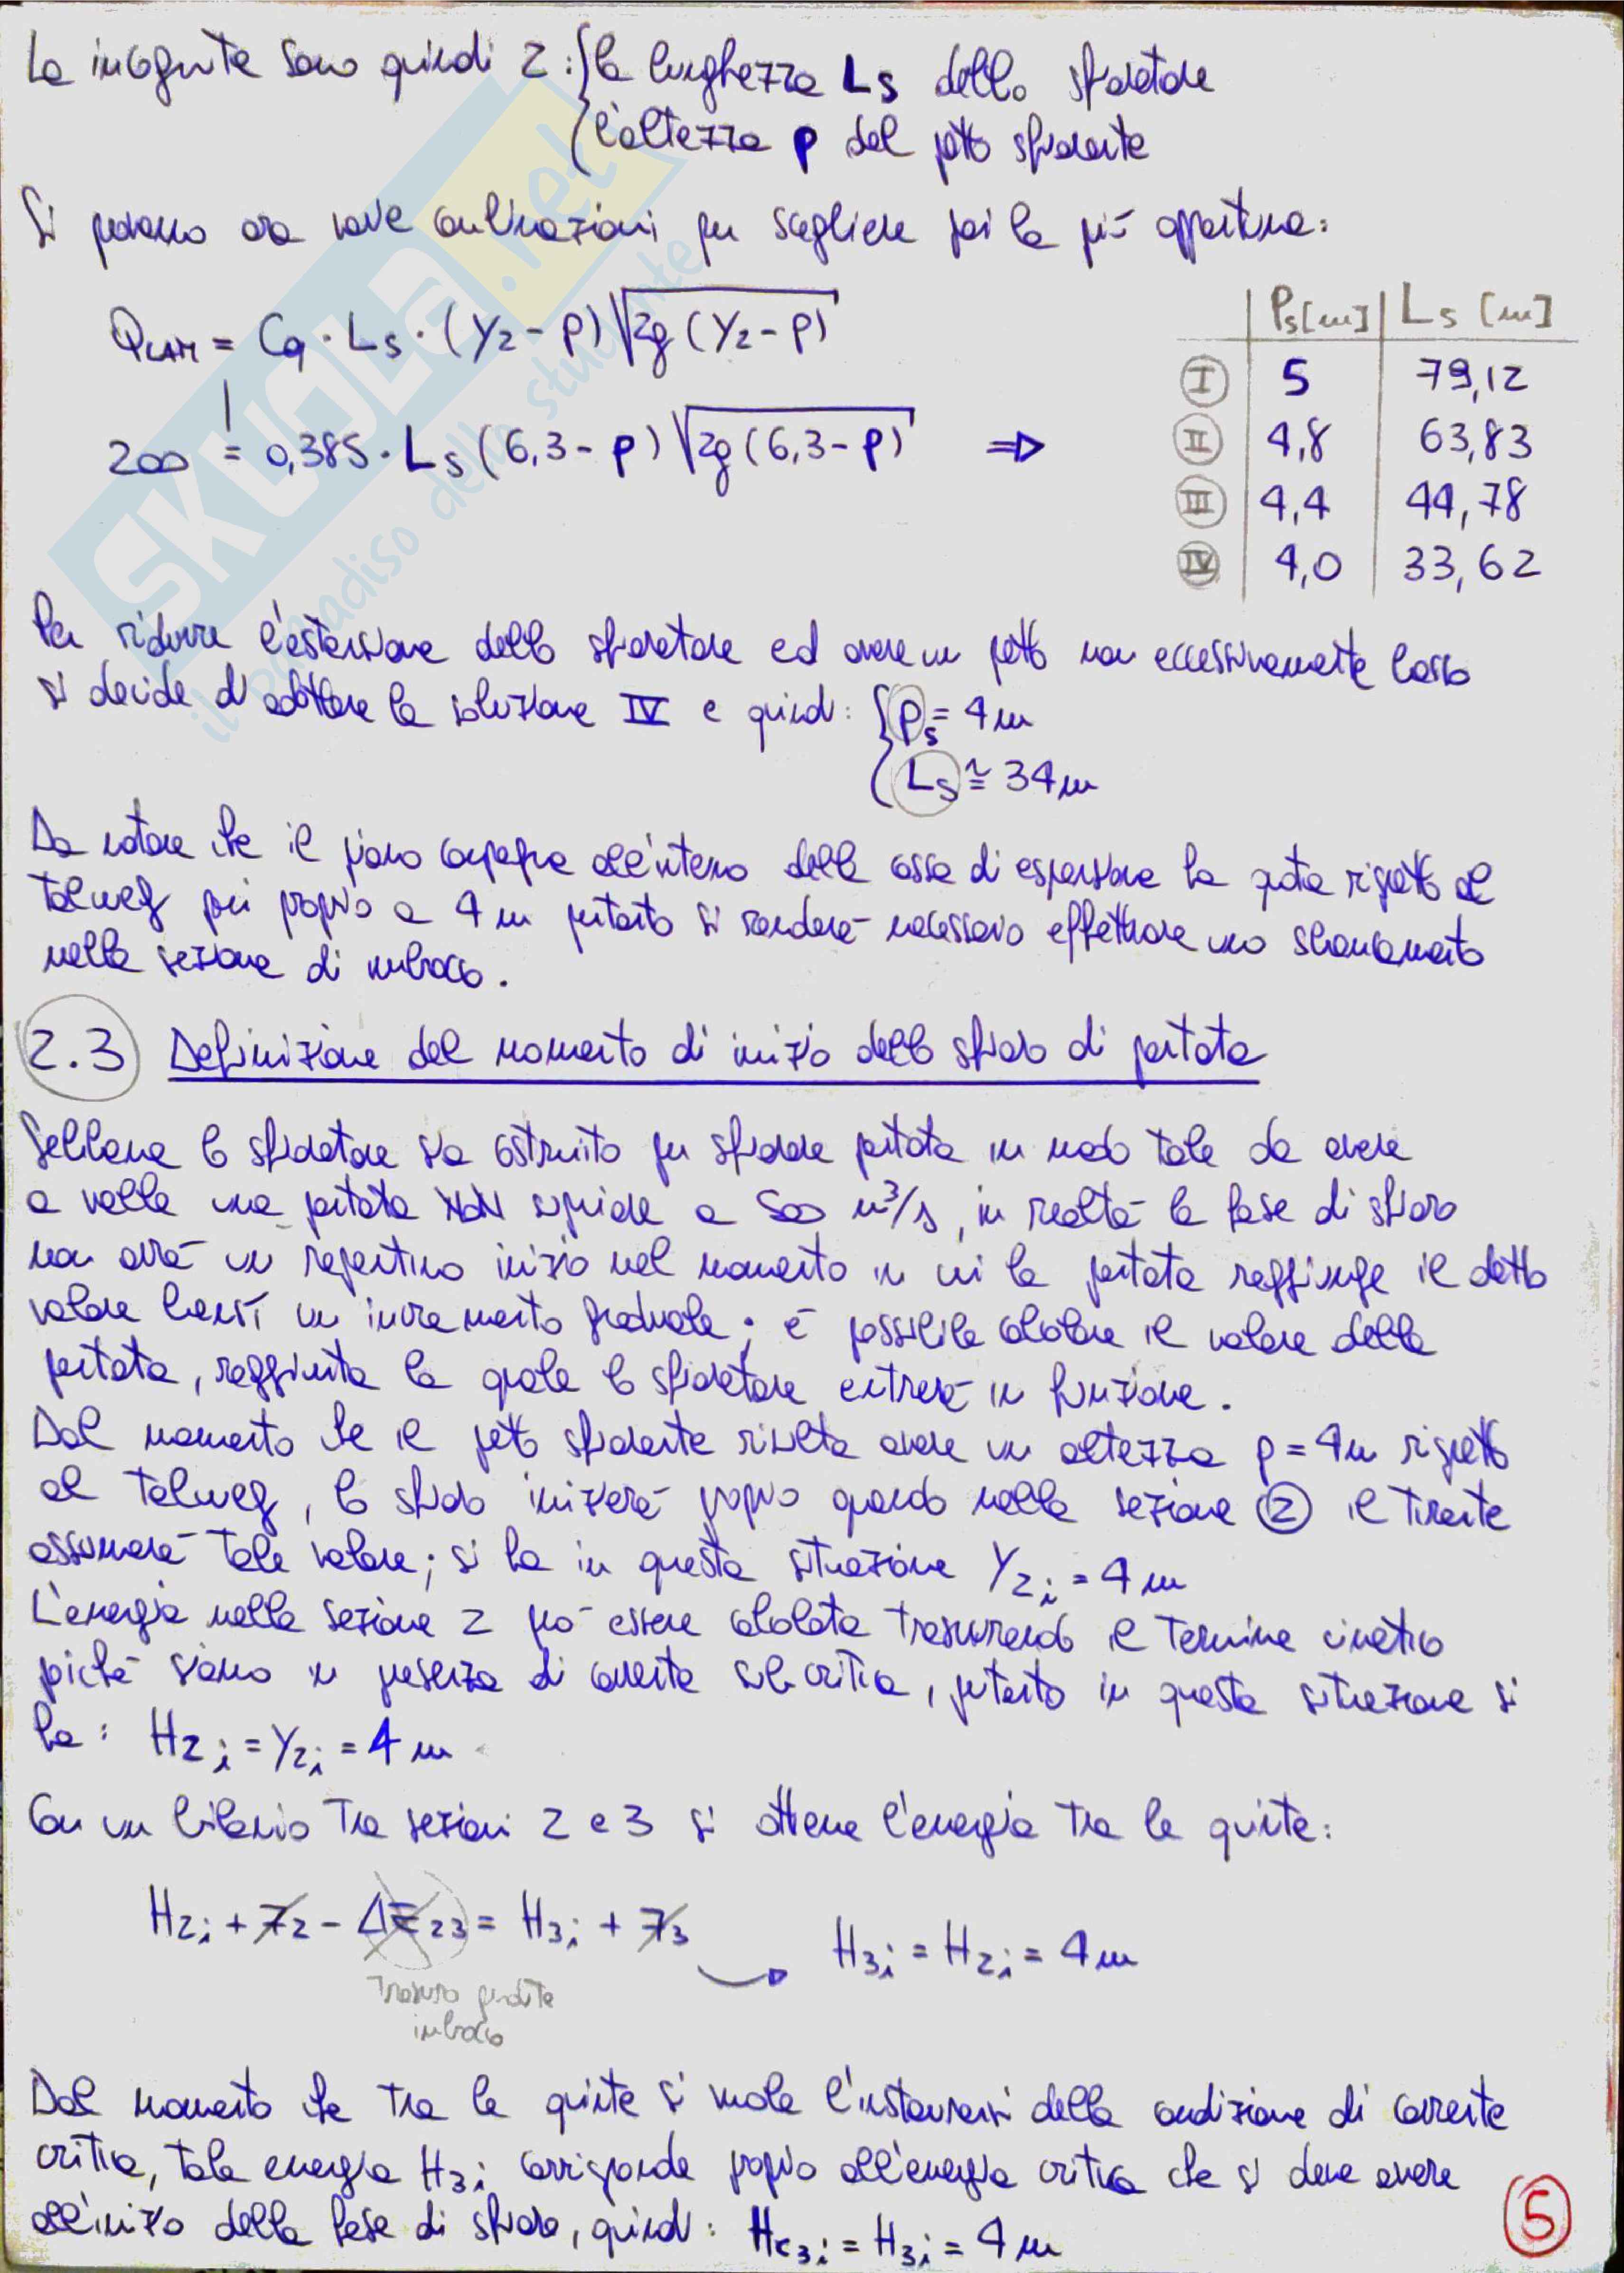 Le incognite sono quindi 2: { la lunghezza Ls dello sfioratore
{ l'altezza p del petto sfiorante
Si possono ora varie combinazioni per scegliere poi la più opportuna:
QLAM = Cq · Ls · (Y2 - p) √2g (Y2 - p)
200 = 0,385 · Ls (6,3 - p) √2g (6,3 - p) ⇒
Ps [m] | Ls [m]
I 5 79,12
II 4,8 63,83
III 4,4 44,78
IV 4,0 33,62
Per ridurre l'estensione dello sfioratore ed avere un petto non eccessivamente basso
si decide d'adottare la soluzione IV e quindi: { Ps = 4 m
{ Ls ≅ 34 m
Da notare che il piano campagna all'interno della cassa di espansione ha quota rispetto al
talweg pari proprio a 4 m pertanto si renderà necessario effettuare uno sbancamento
nella sezione di imbocco.
2.3 Definizione del momento di inizio dello sfioro di portata
Sebbene lo sfioratore sia costruito per sfiorare portata in modo tale da avere
a valle una portata NON superiore a 500 m³/s, in realtà la fase di sfioro
non avrà un repentino inizio nel momento in cui la portata raggiunge il detto
valore bensì un incremento graduale; è possibile calcolare il valore della
portata, raggiunta la quale lo sfioratore entrerà in funzione.
Dal momento che il petto sfiorante risulta avere un altezza p = 4 m rispetto
al talweg, lo sfioro inizierà proprio quando nella sezione ② il tirante
assumerà tale valore; si ha in questa situazione Y2i = 4 m
L'energia nella sezione 2 può essere calcolata trascurando il termine cinetico
poichè siamo in presenza di corrente subcritica, pertanto in questa situazione si
ha: H2i = Y2i = 4 m
Con un bilancio tra sezioni 2 e 3 si ottiene l'energia tra le quinte:
H2i + z2 - ΔE23 = H3i + z3
H3i = H2i = 4 m
Trascuro perdite
imbocco
Dal momento che tra le quinte si vuole l'instaurarsi della condizione di corrente
critica, tale energia H3i corrisponde proprio all'energia critica che si deve avere
all'inizio della fase di sfioro, quindi: Hc3i = H3i = 4 m
5
SKUOLA.net
il paradiso dello studente